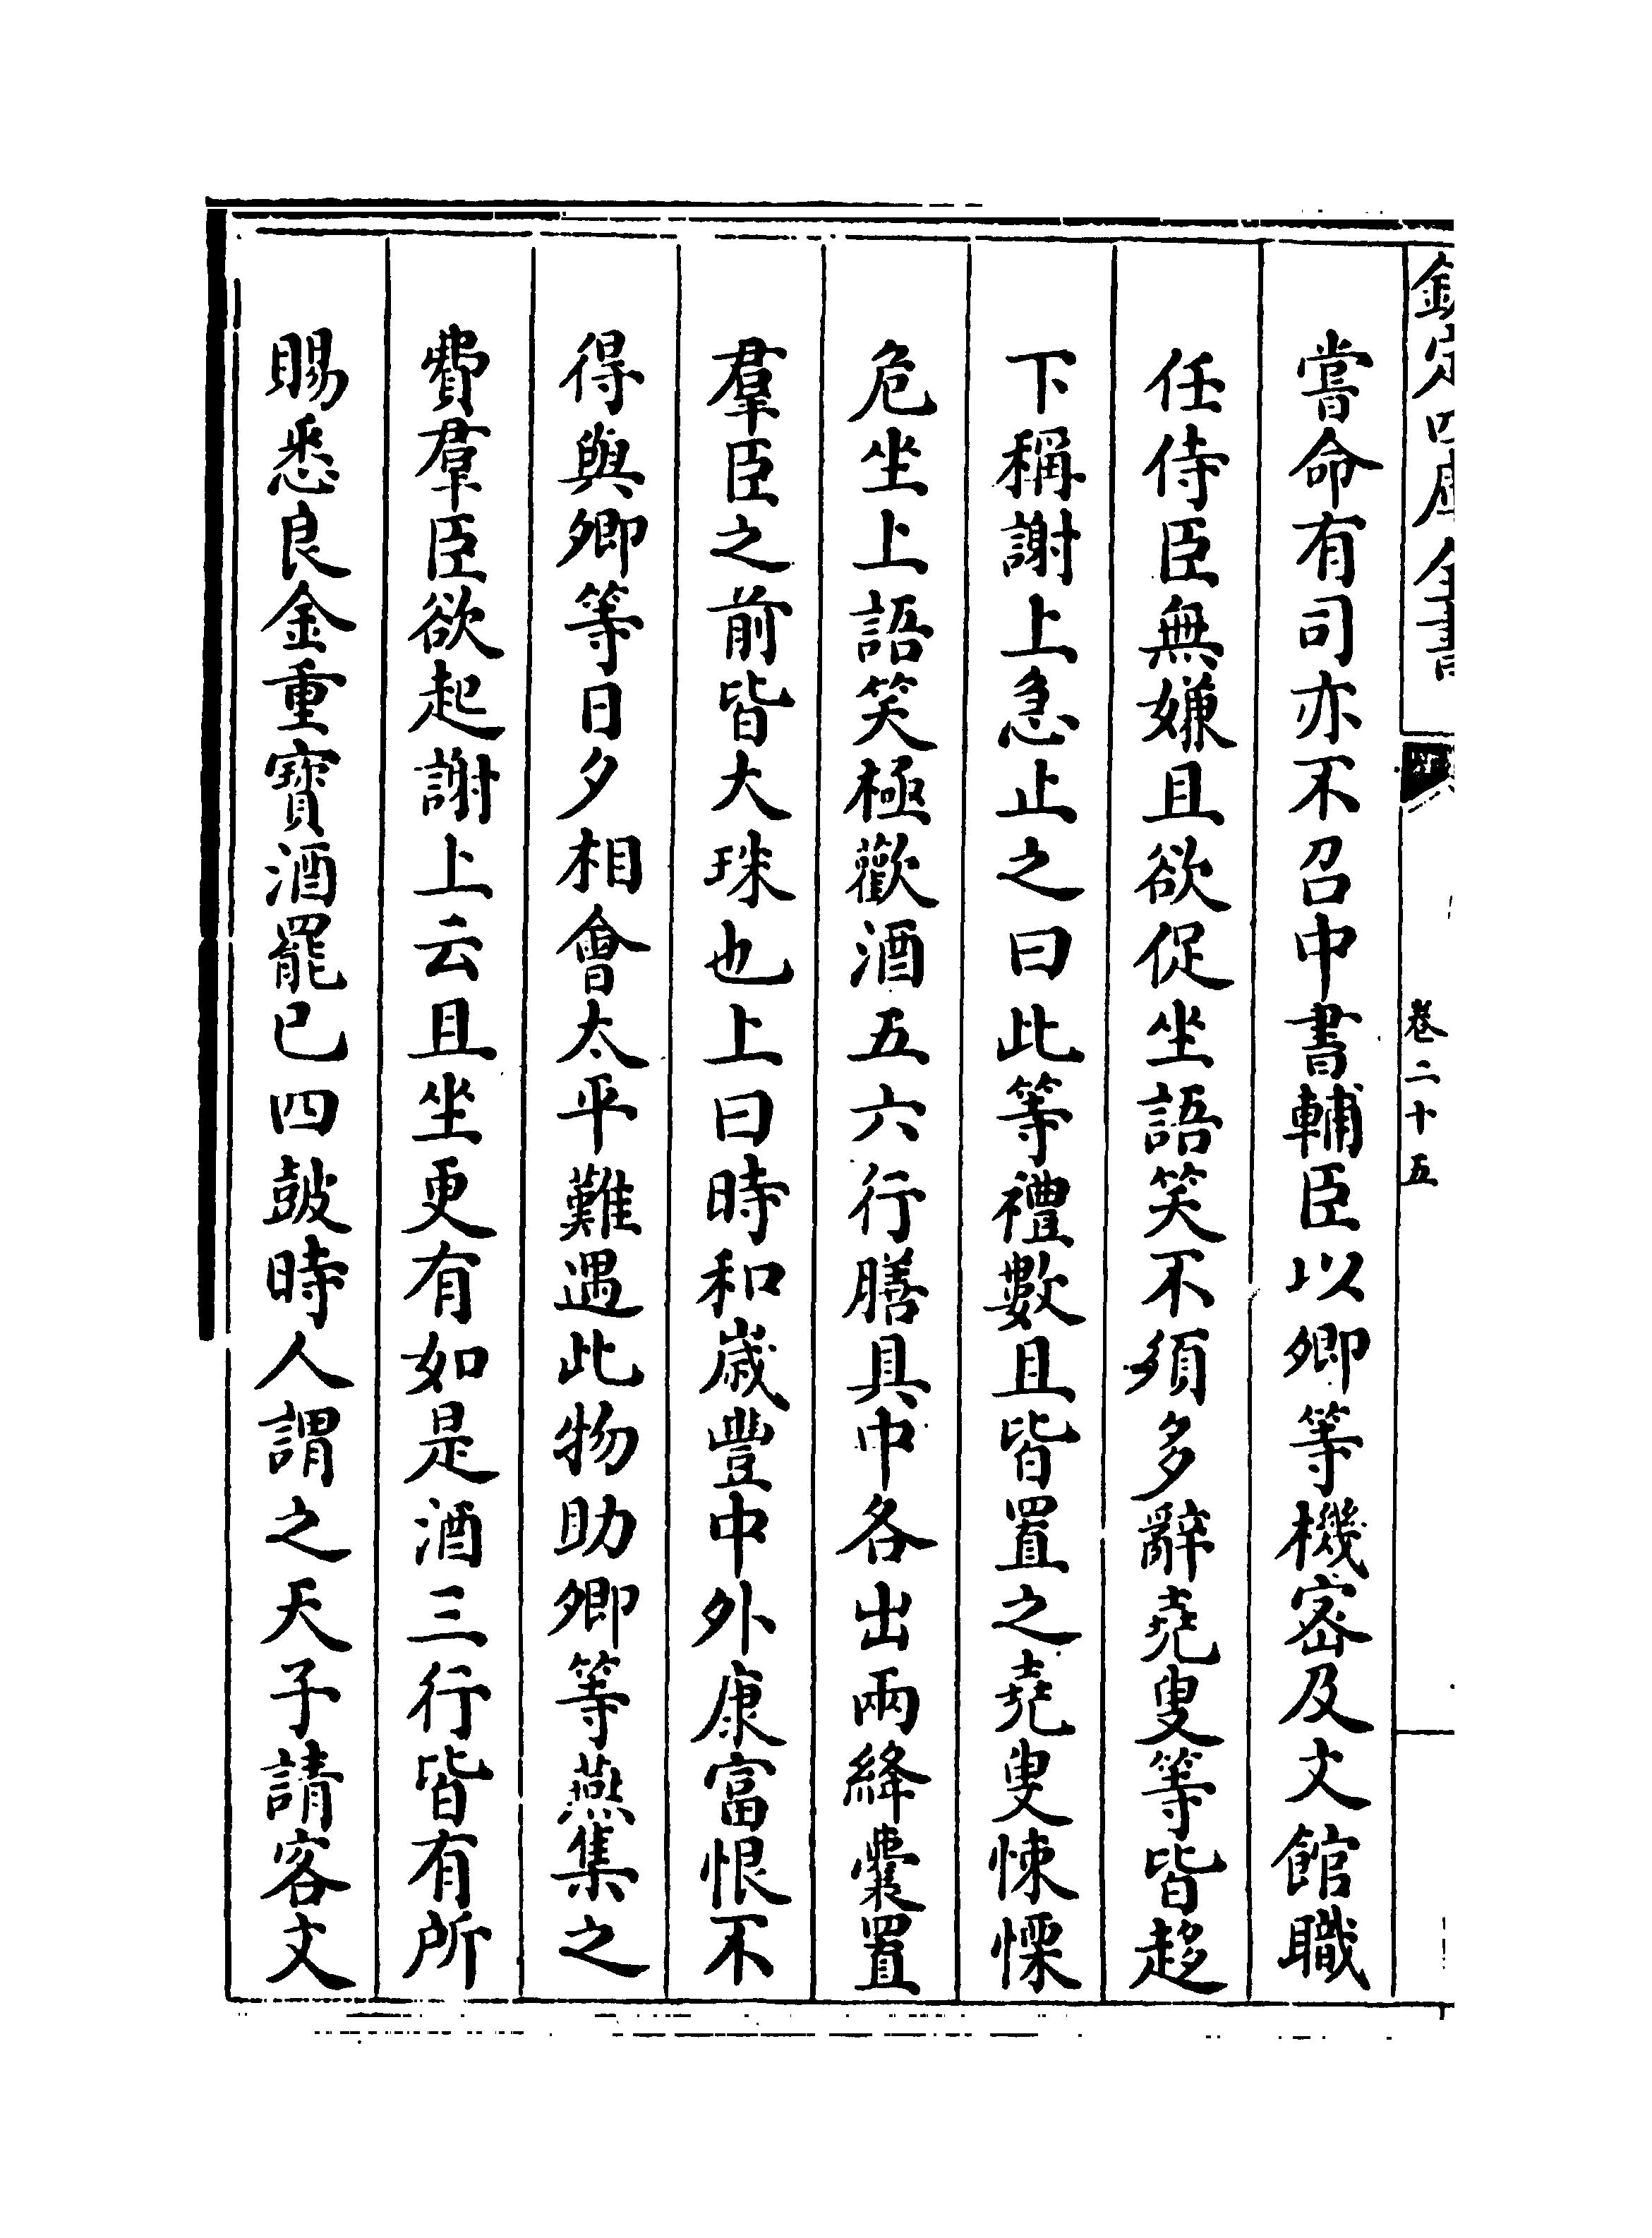 欽定四庫全書
卷二十五
嘗命有司亦不召中書輔臣以卿等機密及文館職
任侍臣無嫌且欲促坐語笑不須多辭堯叟等皆趍
下稱謝上急止之曰此等禮數且皆置之堯叟悚慄
危坐上語笑極歡酒五六行膳具中各出兩絳囊置
羣臣之前皆大珠也上曰時和嵗豐中外康富恨不
得與卿等日夕相會太平難遇此物助卿等燕集之
費羣臣欲起謝上云且坐更有如是酒三行皆有所
賜悉良金重寳酒罷已四鼓時人謂之天子請客文